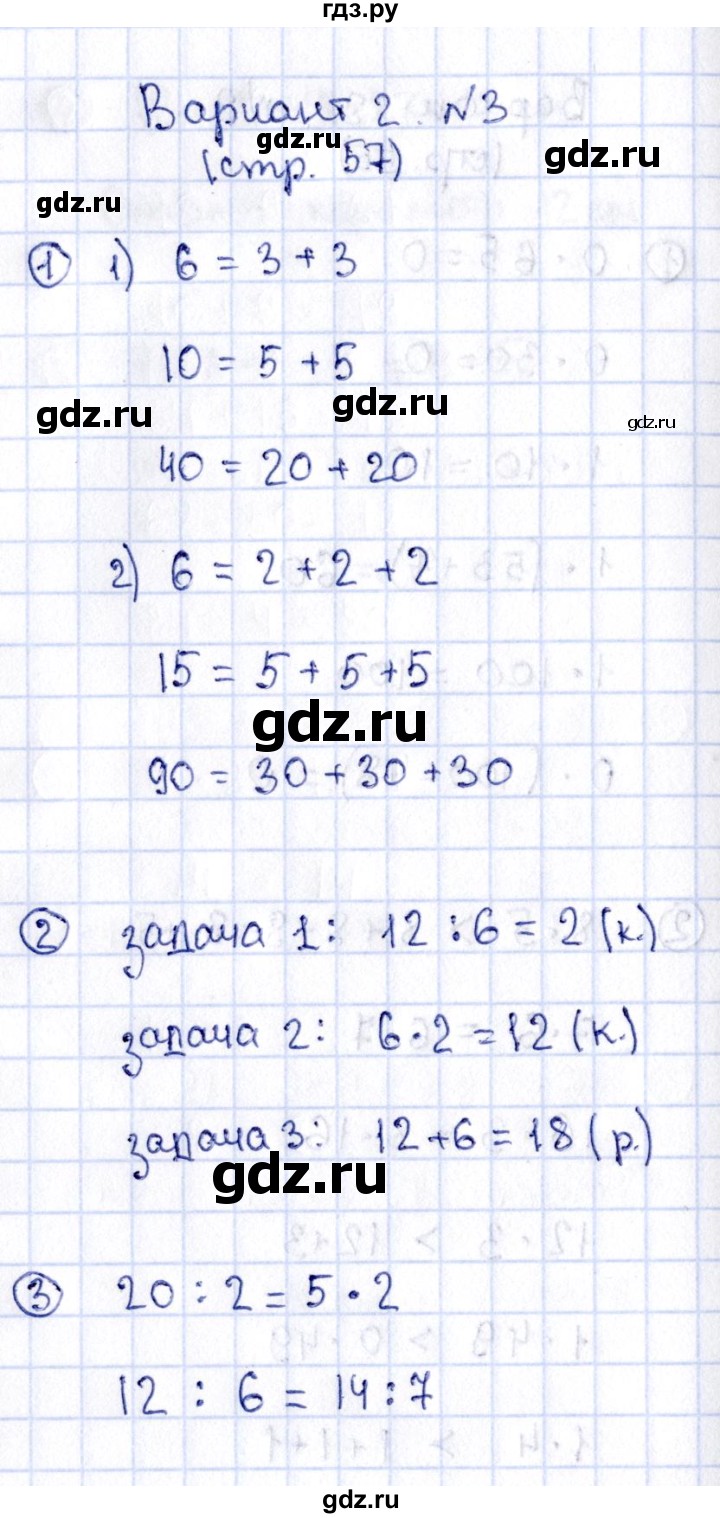 гдз.ру
Вариант 2. №3
gdz.ru
(стр. 57)
gdz.ru
gdz.ru
1 1) 6 = 3 + 3
10 = 5 + 5
gdz.ru
gdz.ru
gdz.ru
40 = 20 + 20
2) 6 = 2 + 2 + 2
15 = 5 + 5 + 5
gdz.ru
90 = 30 + 30 + 30
2 задача 1: 12 : 6 = 2 (к.)
задача 2: 6 · 2 = 12 (к.)
задача 3: 12 + 6 = 18 (р.)
gdz.ru
3 20 : 2 = 5 · 2
12 : 6 = 14 : 7
gdz.ru